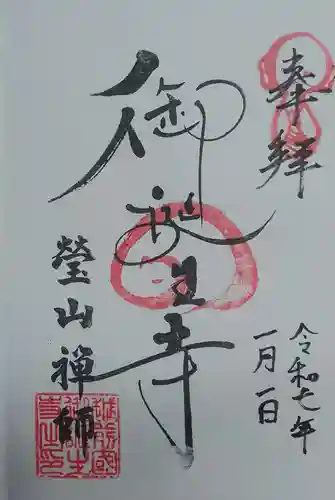 奉拝
令和七年
一月一日
御誕生寺
瑩山禅師